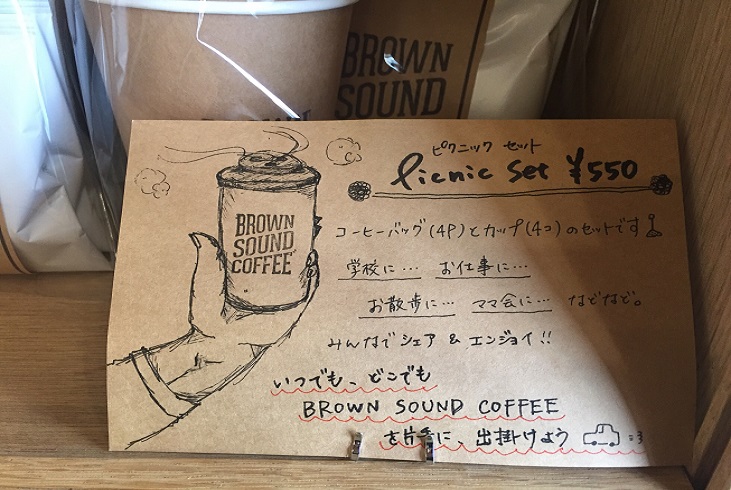 BROWN
SOUND
ピクニック セット
Picnic Set ¥550
BROWN
SOUND
COFFEE
コーヒーバッグ(4P)とカップ(4コ)のセットです
学校に… お仕事に…
お散歩に… ママ会に… などなど。
みんなでシェア & エンジョイ!!
いつでも、どこでも
BROWN SOUND COFFEE
を片手に、出掛けよう